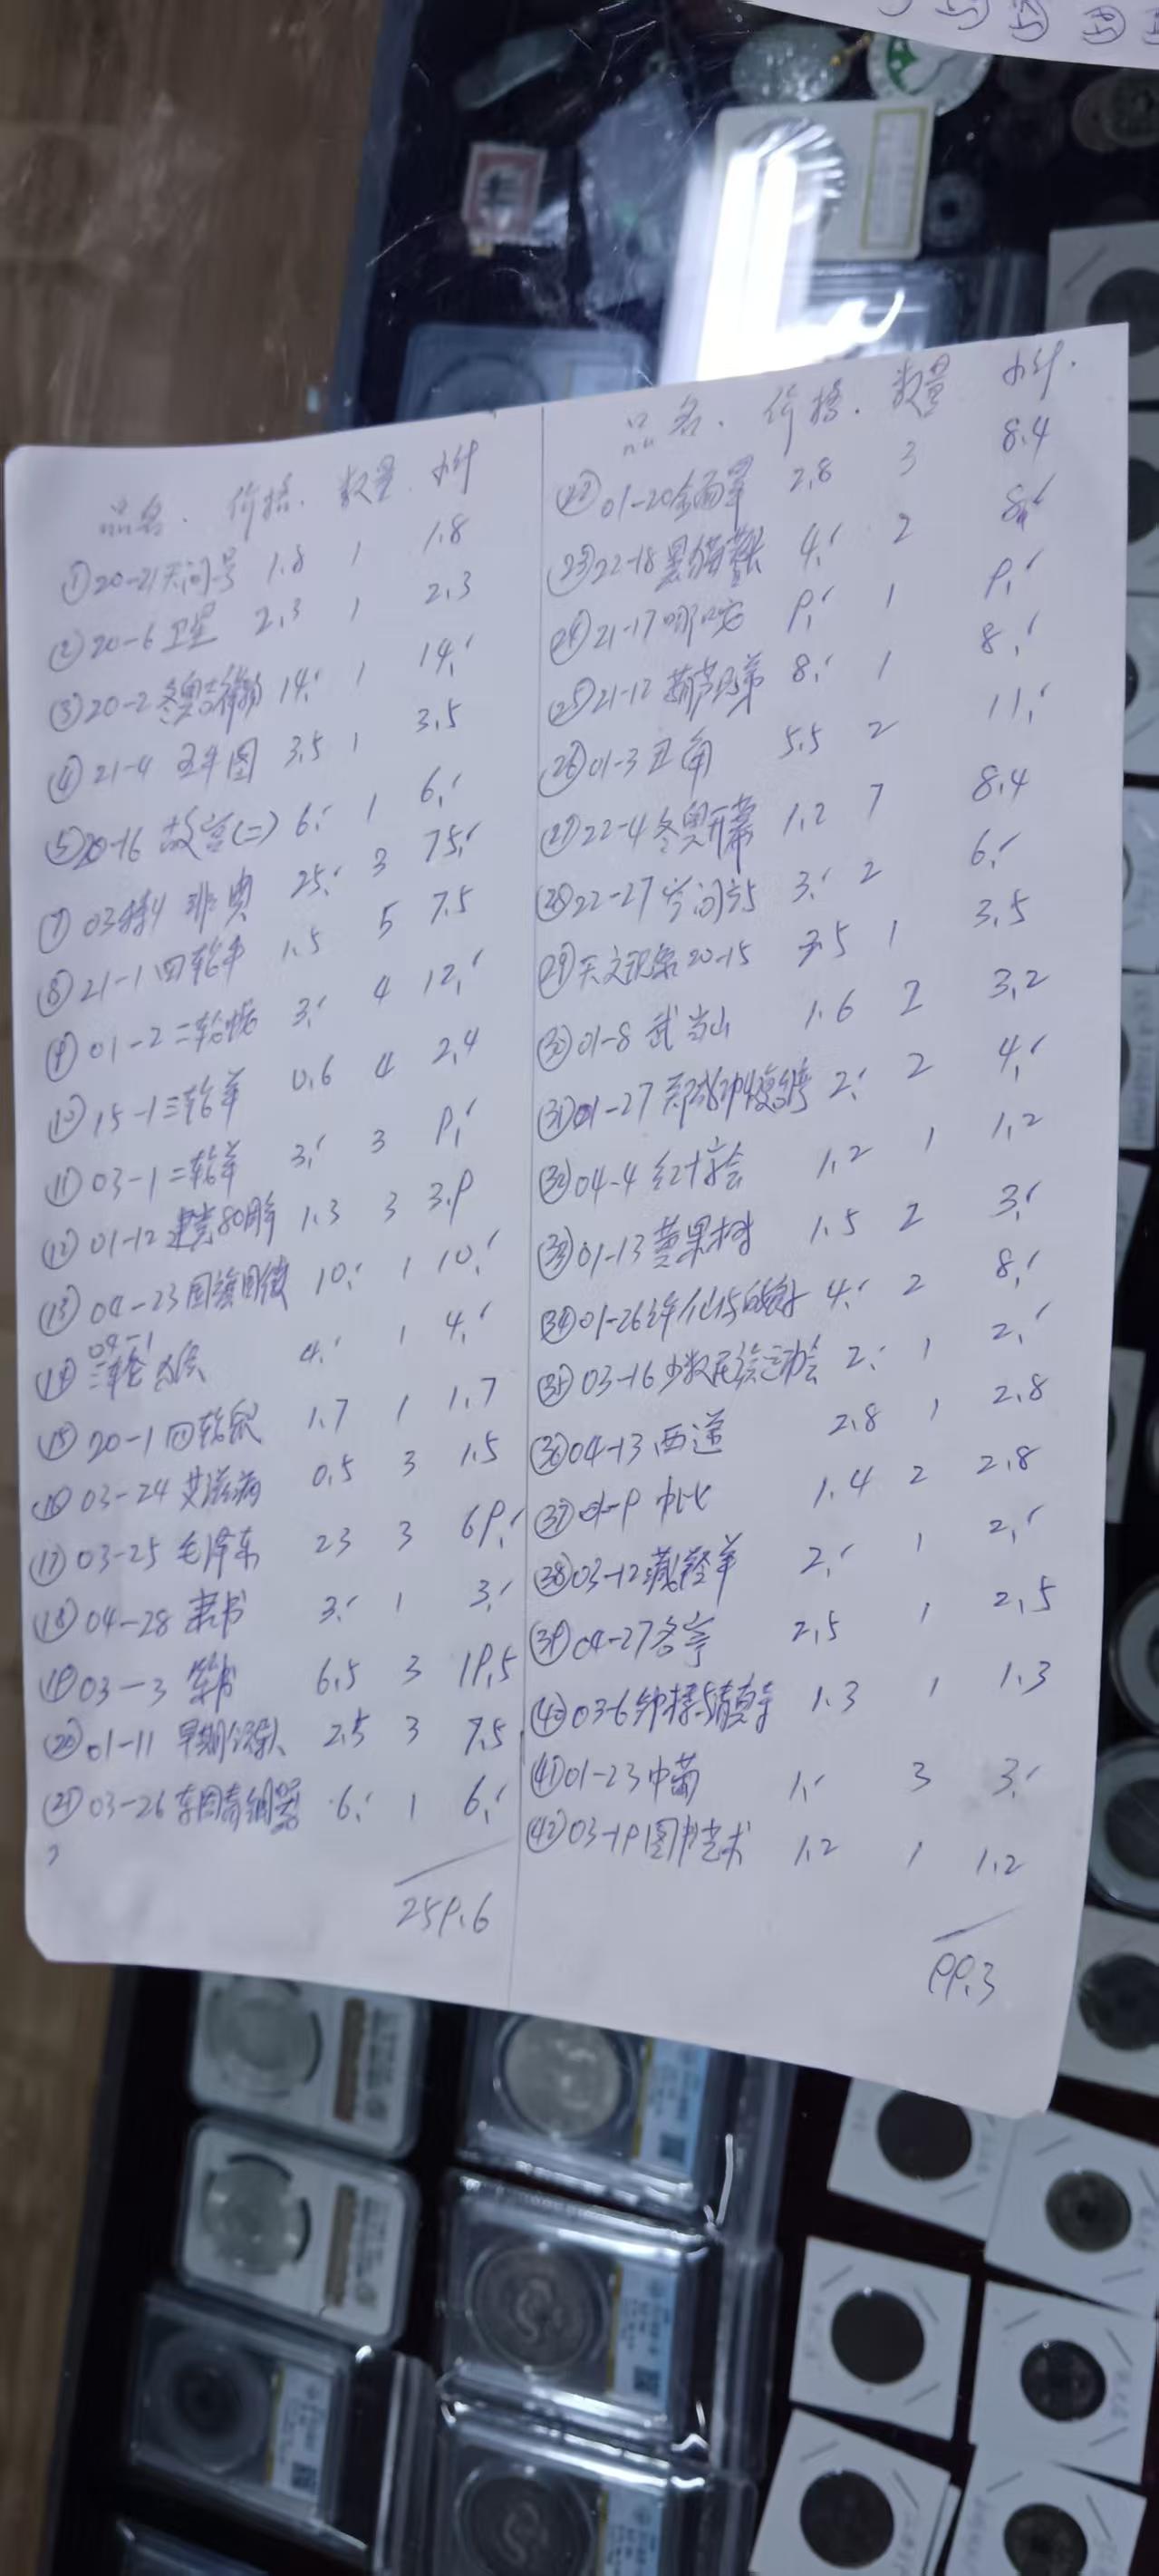 品名. 价格. 数量. 小计
①20-21天问号 1.8 1 1.8
②20-6卫星 2.3 1 2.3
③20-2冬奥吉祥物 14.- 1 14.-
④21-4五牛图 3.5 1 3.5
⑤20-16故宫(二) 6.- 1 6.-
⑦03特4非典 25.- 3 75.-
⑧21-1四轮牛 1.5 5 7.5
⑨01-2二轮蛇 3.- 4 12.-
⑩15-1三轮羊 0.6 4 2.4
⑪03-1二轮羊 3.- 3 9.-
⑫01-12建党80周年 1.3 3 3.9
⑬04-23国旗国徽 10.- 1 10.-
⑭04-1三轮猴 4.- 1 4.-
⑮20-1四轮鼠 1.7 1 1.7
⑯03-24艾滋病 0.5 3 1.5
⑰03-25毛泽东 23 3 69.-
⑱04-28隶书 3.- 1 3.-
⑲03-3篆书 6.5 3 19.5
⑳01-11早期领导人 2.5 3 7.5
㉑03-26东周青铜器 6.- 1 6.-
259.6
品名. 价格. 数量 小计.
㉒01-20金面罩 2.8 3 8.4
㉓22-18黑猫警长 4.- 2 8.-
㉔21-17哪吒 9.- 1 9.-
㉕21-12葫芦兄弟 8.- 1 8.-
㉖01-3丑角 5.5 2 11.-
㉗22-4冬奥开幕 1.2 7 8.4
㉘22-27空间站 3.- 2 6.-
㉙天文现象20-15 3.5 1 3.5
㉚01-8武当山 1.6 2 3.2
㉛01-27郑成功收复台湾 2.- 2 4.-
㉜04-4红十字会 1.2 1 1.2
㉝01-13黄果树 1.5 2 3.-
㉞01-26许仙与白娘子 4.- 2 8.-
㉟03-16少数民族运动会 2.- 1 2.-
㊱04-13西递 2.8 1 2.8
㊲01-9中比 1.4 2 2.8
㊳03-12藏羚羊 2.- 1 2.-
㊴04-27名亭 2.5 1 2.5
㊵03-6钟楼与清真寺 1.3 1 1.3
㊶01-23中葡 1.- 3 3.-
㊷03-19图书艺术 1.2 1 1.2
99.3